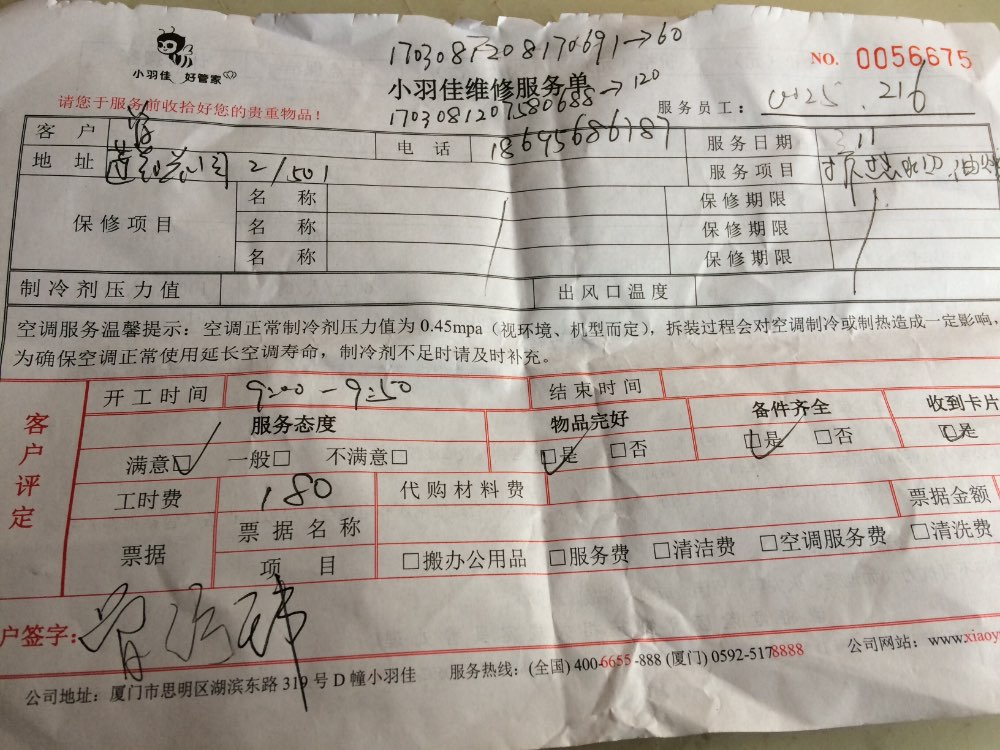 1703087208170691→60
小羽佳 好管家
NO. 0056675
小羽佳维修服务单
1703081207580688→120
请您于服务前收拾好您的贵重物品！
服务员工： 216
客户 曾 电话 18695686787 服务日期 3.11
地址 2/501 服务项目
保修项目 名称 保修期限
名称 保修期限
名称 保修期限
制冷剂压力值 出风口温度
空调服务温馨提示：空调正常制冷剂压力值为0.45mpa（视环境、机型而定），拆装过程会对空调制冷或制热造成一定影响，
为确保空调正常使用延长空调寿命，制冷剂不足时请及时补充。
客户评定
开工时间 9:00-9:50 结束时间
服务态度 物品完好 备件齐全 收到卡片
满意□ 一般□ 不满意□ □是 □否 □是 □否 □是
工时费 180 代购材料费 票据金额
票据 票据名称
项目 □搬办公用品 □服务费 □清洁费 □空调服务费 □清洗费
户签字：
公司地址：厦门市思明区湖滨东路319号D幢小羽佳 服务热线：(全国) 400-6655-888 (厦门) 0592-5178888 公司网站：www.xiaoy